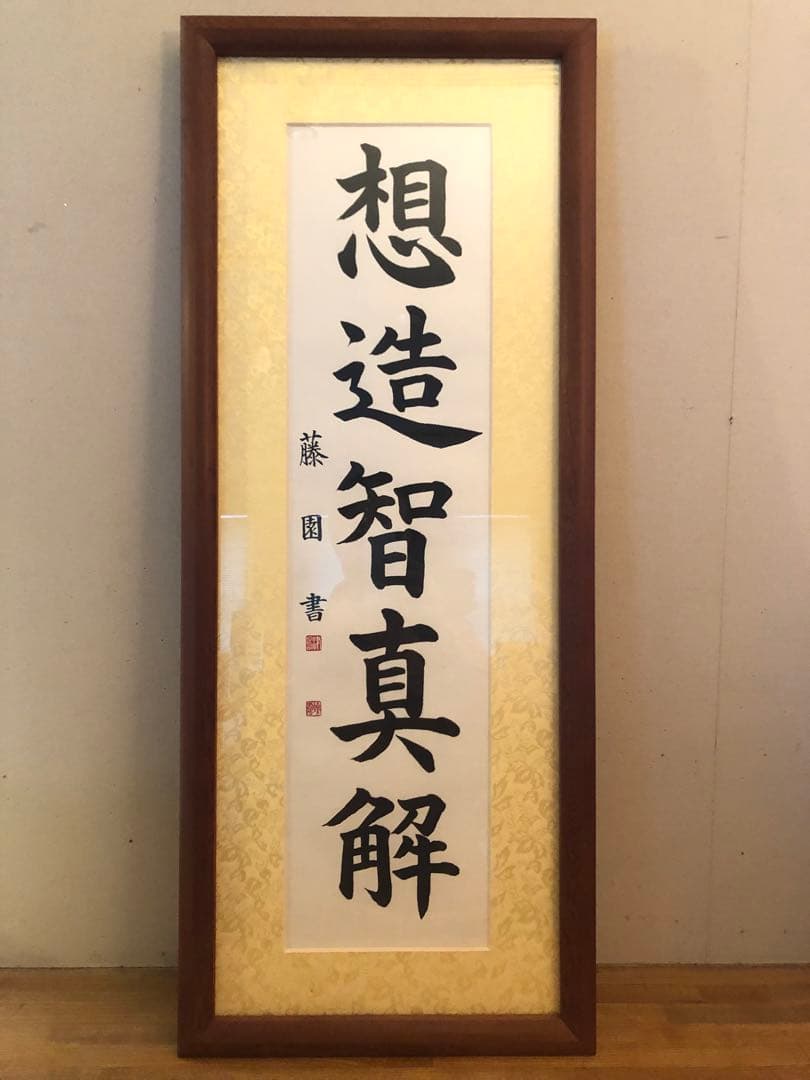 想造智真解
藤園書